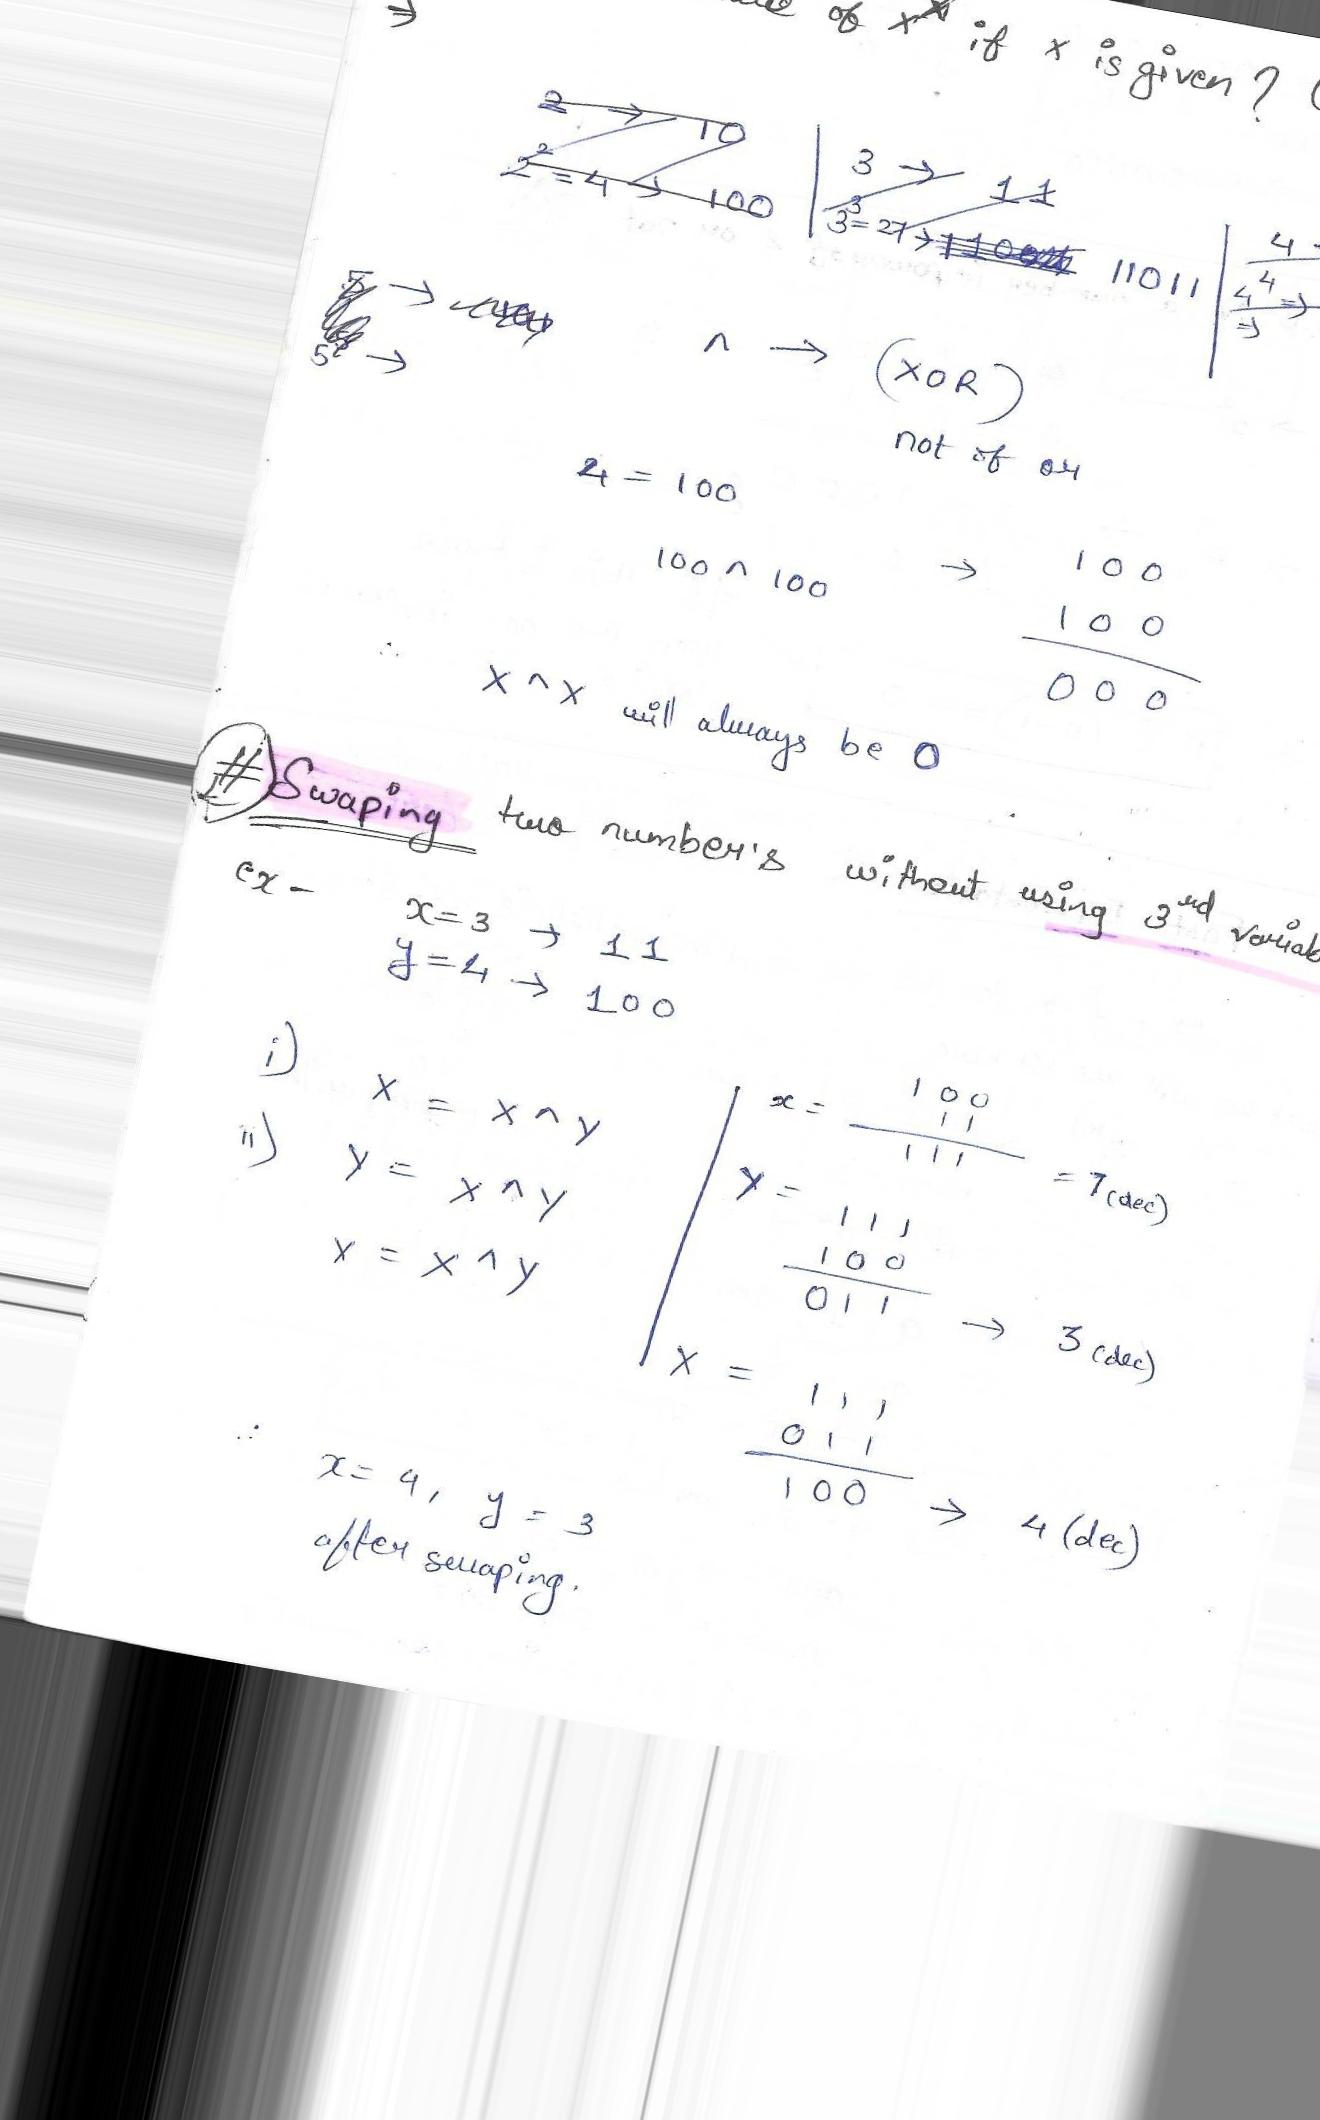 ⇒ of x^x if x is given? (
2 → 10
2² = 4 → 100
3 → 11
3³ = 27 → 11011
4
4⁴ ⇒
⇒
5 →
5 →
^ → (XOR)
not of or
4 = 100
100 ^ 100 → 100
100
000
∴ x ^ x will always be 0
# Swaping two number's without using 3rd variab
ex - x = 3 → 11
y = 4 → 100
i) x = x ^ y
ii) y = x ^ y
x = x ^ y
x = 100
11
111 = 7 (dec)
y = 111
100
011 → 3 (dec)
x = 111
011
100 → 4 (dec)
∴ x = 4, y = 3
after swaping.